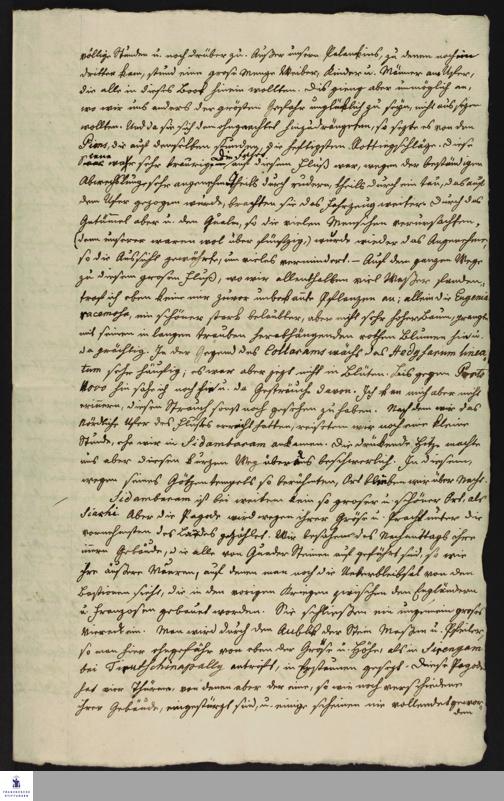 völlige Stunden u. noch drüber zu. Außer unsern Palankins, zu denen noch ein
dritter kam, stund eine große Menge Weiber, Kinder u. Männer am Ufer,
die alle in dieses Boot hinein wollten. Dis gieng aber unmöglich an,
wo wir uns anders der größten Gefahr unglüklich zu seyn, nicht aussezen
wollten. Und da sie sich dem ohngeachtet hinzudrängeten, so sezte es von den
Pions, die auf denselben stunden, die heftigsten Rottingschläge. Diese
Scene war sehr traurig; auf diesem Fluß war, wegen der beständigen
Abwechslung, sehr angenehm. Theils durch rudern, theils durch ein Tau, das auf
dem Ufer gezogen wurde, brachten sie das Fahrzeug weiter. Durch das
Getümmel aber u. den Qualm, so die vielen Menschen verursachten,
(dann unserer waren wol über funfzig,) wurde wieder das Angenehme,
so die Aussicht gewährte, um vieles vermindert. – Auf dem ganzen Wege
zu diesem großen Fluß, wo wir allenthalben viel Waßer fanden,
traf ich eben keine mir zuvor unbekante Pflanzen an; allein die Eugenia
racemosa, ein schöner stark belaubter, aber nicht sehr hoher Baum, prangte
mit seinen in langen Trauben herabhängenden rothen Blumen hie u.
da prächtig. In der Gegend des Collarams wächst das Hedysarum linea-
tum sehr häufig; es war aber jezt nicht in Blüten. Bis gegen Porto
Novo hin sah ich noch hie u. da Gesträuch davon. Ich kan mich aber nicht
erinern, diesen Strauch sonst noch gesehen zu haben. Nachdem wir das
Nördliche Ufer des Flußes erreicht hatten, reiseten wir noch eine kleine
Stunde, ehe wir in Sidambaram ankamen. Die drückende Hitze machte
uns aber diesen kurzen Weg überaus beschwerlich. In diesem,
wegen seines Götzentempels so berühmten, Ort blieben wir über Nacht.
Sidambaram ist bei weitem kein so großer u. schöner Ort, als
Siarhi. Aber die Pagode wird wegen ihrer Größe u. Pracht unter die
vornehmsten des Landes gezählet. Wir besahen des Nachmittags ihre
innern Gebäude, die alle von Quader Steinen aufgeführt sind, so wie
ihre äußere Mauren, auf denen man noch die Ueberbleibsel von den
Bastionen sieht, die in den vorigen Kriegen zwischen den Engländern
u. Franzosen gebauet worden. Sie schließen ein ungemein großes
Viereck ein. Man wird durch den Anblick der Stein Maßen u. Pfeiler,
so man hier ohngefähr von eben der Größe u. Höhe, als in Sirengam
bei Tirutschinapally antrift, in Erstaunen gesezt. Diese Pagode
hat vier Thürme, von denen aber der eine, so wie noch verschiedene
ihrer Gebäude, eingestürzt sind, u. einige scheinen nie vollendet gewor-
den
FRANCKESCHE
STIFTUNGEN